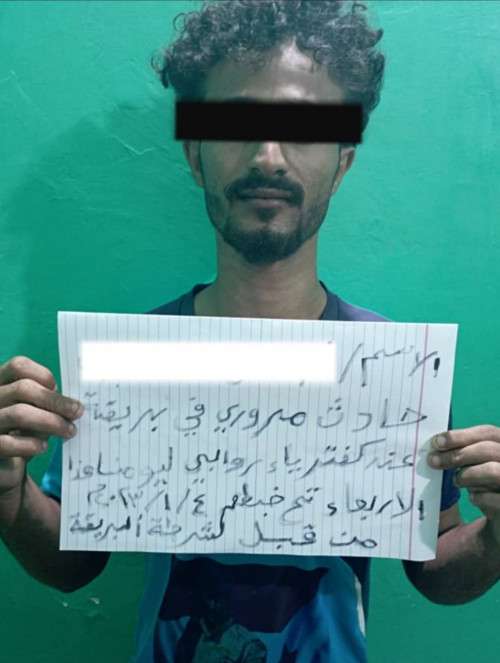 الاسم/
حادث مروري في بريقة
عند كفترياء روابي ليومنا هذا
الاربعاء ٢٠٢٣/١/٤م تم ضبطه
من قبل شرطة البريقة